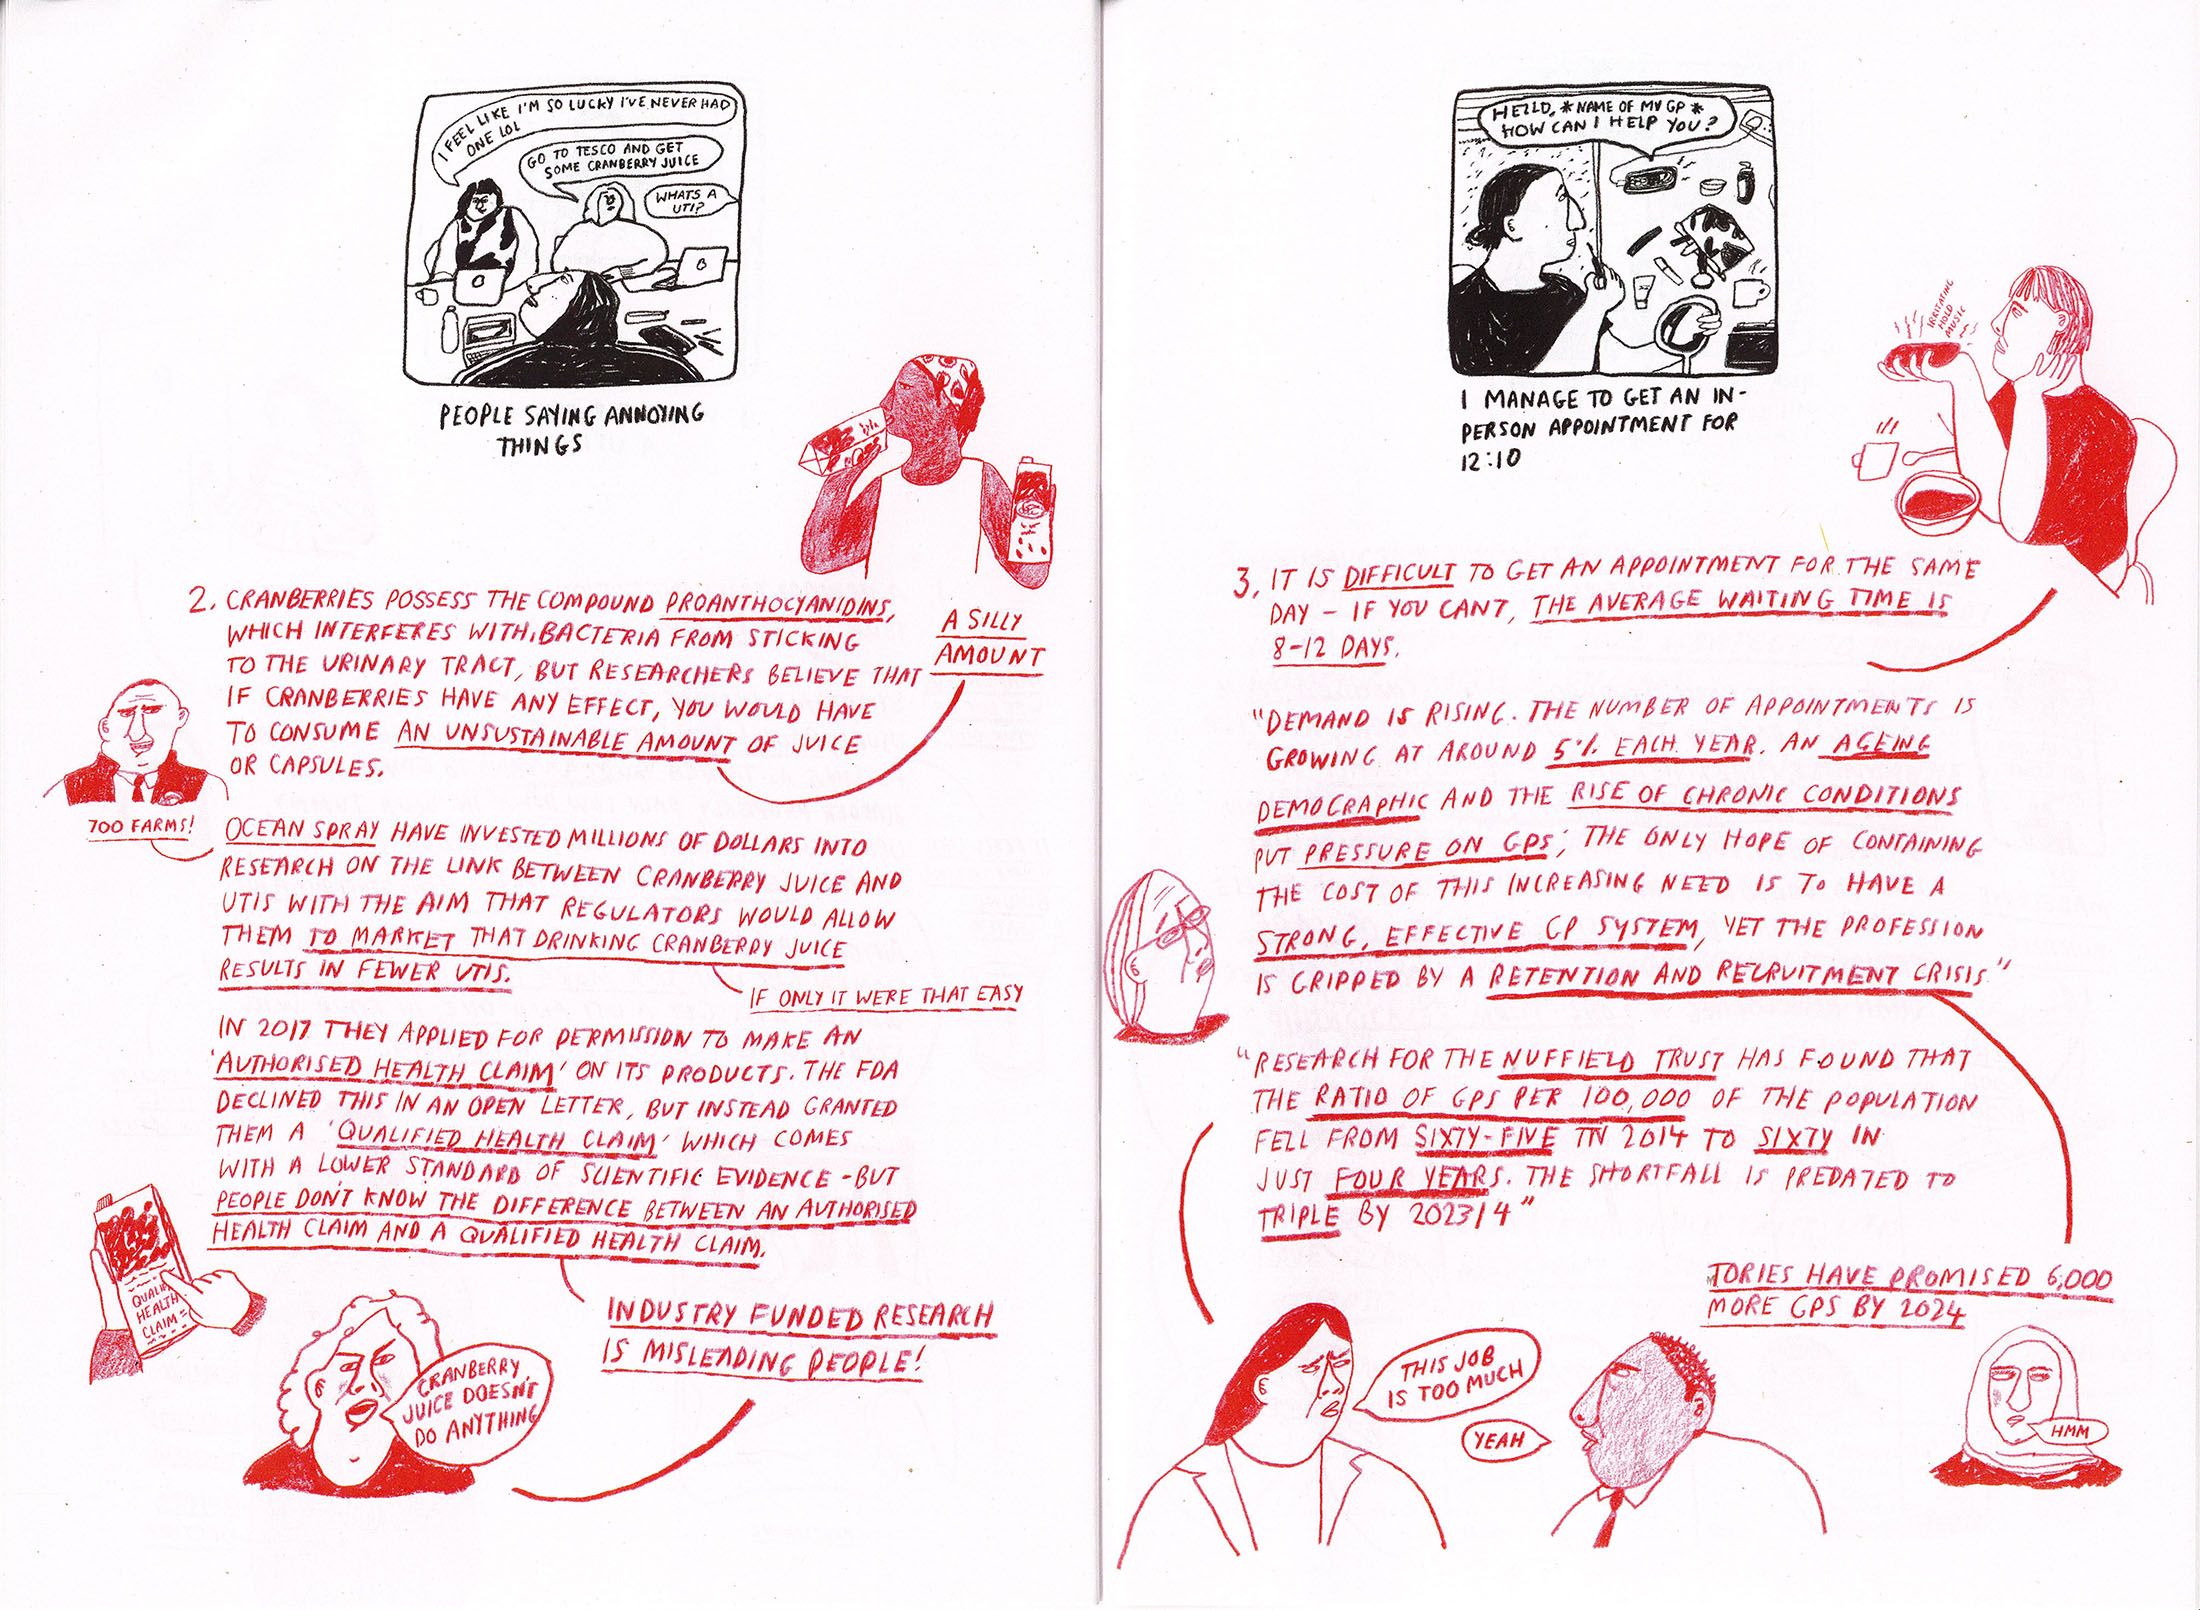 I FEEL LIKE I'M SO LUCKY I'VE NEVER HAD
ONE LOL
GO TO TESCO AND GET
SOME CRANBERRY JUICE
WHATS A
UTI?
PEOPLE SAYING ANNOYING
THINGS
2. CRANBERRIES POSSESS THE COMPOUND PROANTHOCYANIDINS,
WHICH INTERFERES WITH BACTERIA FROM STICKING
TO THE URINARY TRACT, BUT RESEARCHERS BELIEVE THAT
IF CRANBERRIES HAVE ANY EFFECT, YOU WOULD HAVE
TO CONSUME AN UNSUSTAINABLE AMOUNT OF JUICE
OR CAPSULES.
A SILLY
AMOUNT
700 FARMS!
OCEAN SPRAY HAVE INVESTED MILLIONS OF DOLLARS INTO
RESEARCH ON THE LINK BETWEEN CRANBERRY JUICE AND
UTIS WITH THE AIM THAT REGULATORS WOULD ALLOW
THEM TO MARKET THAT DRINKING CRANBERRY JUICE
RESULTS IN FEWER UTIS.
IF ONLY IT WERE THAT EASY
IN 2017 THEY APPLIED FOR PERMISSION TO MAKE AN
'AUTHORISED HEALTH CLAIM' ON ITS PRODUCTS. THE FDA
DECLINED THIS IN AN OPEN LETTER, BUT INSTEAD GRANTED
THEM A 'QUALIFIED HEALTH CLAIM' WHICH COMES
WITH A LOWER STANDARD OF SCIENTIFIC EVIDENCE - BUT
PEOPLE DON'T KNOW THE DIFFERENCE BETWEEN AN AUTHORISED
HEALTH CLAIM AND A QUALIFIED HEALTH CLAIM.
HEALTH
CLAIM"
INDUSTRY FUNDED RESEARCH
IS MISLEADING PEOPLE!
CRANBERRY
JUICE DOESN'T
DO ANYTHING
HELLO, *NAME OF MY GP*
HOW CAN I HELP YOU?
I MANAGE TO GET AN IN-
PERSON APPOINTMENT FOR
12:10
IRRITATING
HOLD
MUSIC
3. IT IS DIFFICULT TO GET AN APPOINTMENT FOR THE SAME
DAY – IF YOU CANT, THE AVERAGE WAITING TIME IS
8-12 DAYS.
"DEMAND IS RISING. THE NUMBER OF APPOINTMENTS IS
GROWING AT AROUND 5% EACH YEAR. AN AGEING
DEMOGRAPHIC AND THE RISE OF CHRONIC CONDITIONS
PUT PRESSURE ON GPS; THE ONLY HOPE OF CONTAINING
THE COST OF THIS INCREASING NEED IS TO HAVE A
STRONG, EFFECTIVE GP SYSTEM, YET THE PROFESSION
IS GRIPPED BY A RETENTION AND RECRUITMENT CRISIS"
"RESEARCH FOR THE NUFFIELD TRUST HAS FOUND THAT
THE RATIO OF GPS PER 100,000 OF THE POPULATION
FELL FROM SIXTY-FIVE IN 2014 TO SIXTY IN
JUST FOUR YEARS. THE SHORTFALL IS PREDATED TO
TRIPLE BY 2023/4"
TORIES HAVE PROMISED 6,000
MORE GPS BY 2024
THIS JOB
IS TOO MUCH
YEAH
HMM